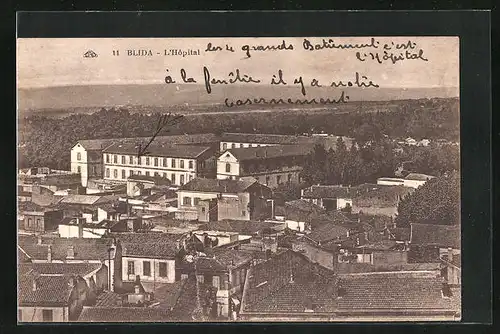 11 BLIDA - L'Hôpital
les 4 grands Batîment c'est l'Hôpital
à la fenêtre il y a notre
casernement